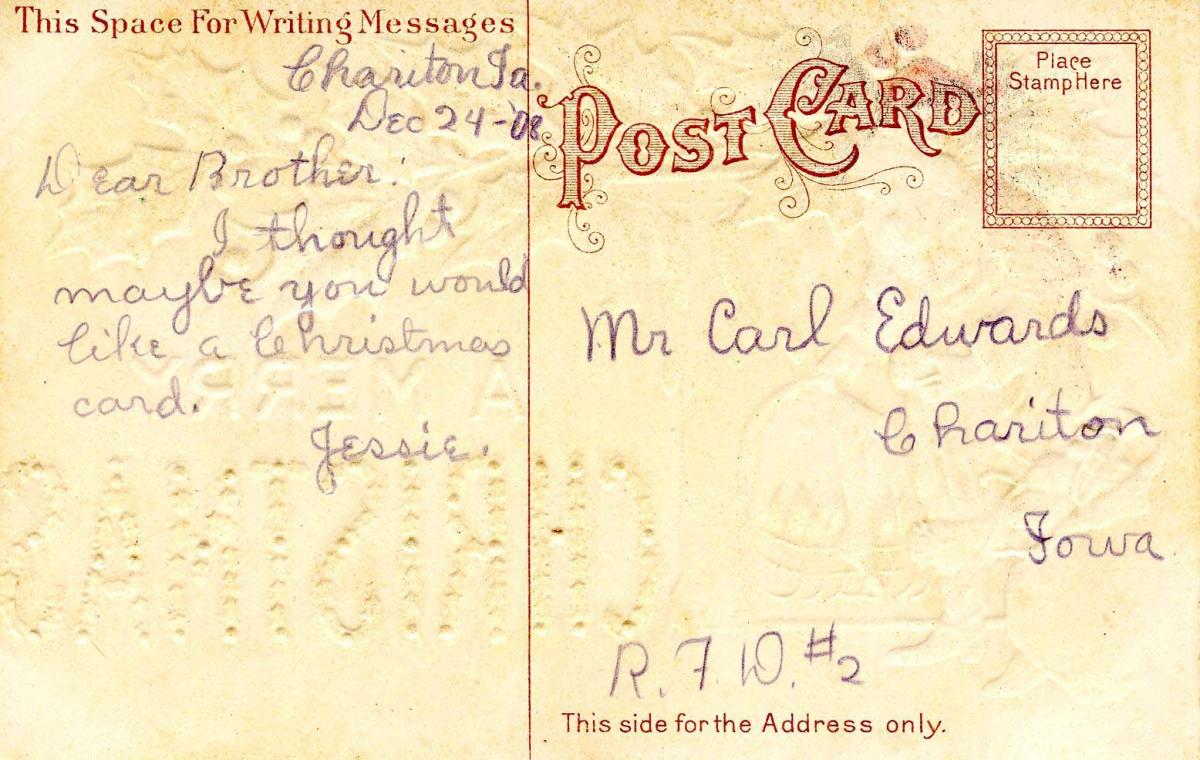 This Space For Writing Messages
Chariton Ia.
Dec 24-'08
Dear Brother:
I thought
maybe you would
like a Christmas
card.
Jessie.
POST CARD
Place
Stamp Here
Mr Carl Edwards
Chariton
Iowa
R.F.D. #2
This side for the Address only.
A MERRY
CHRISTMAS